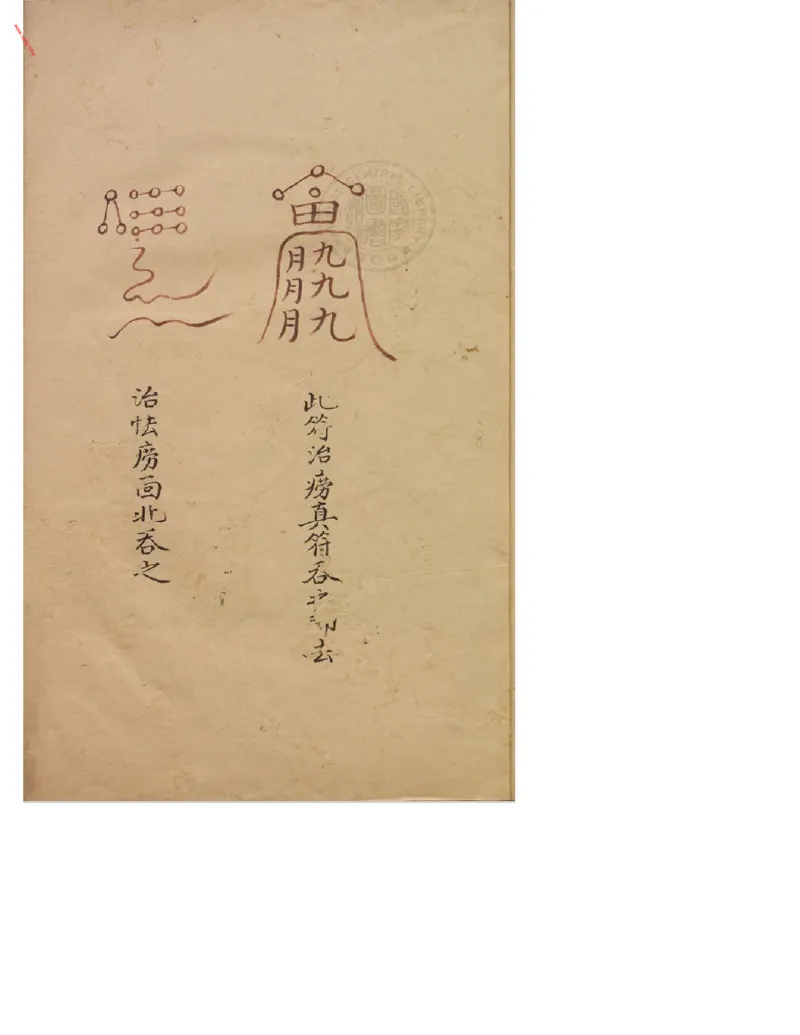 田
月九
月九
月九
此符治痨真符吞之即去
治怯痨面北吞之
CENTRAL LIBRARY